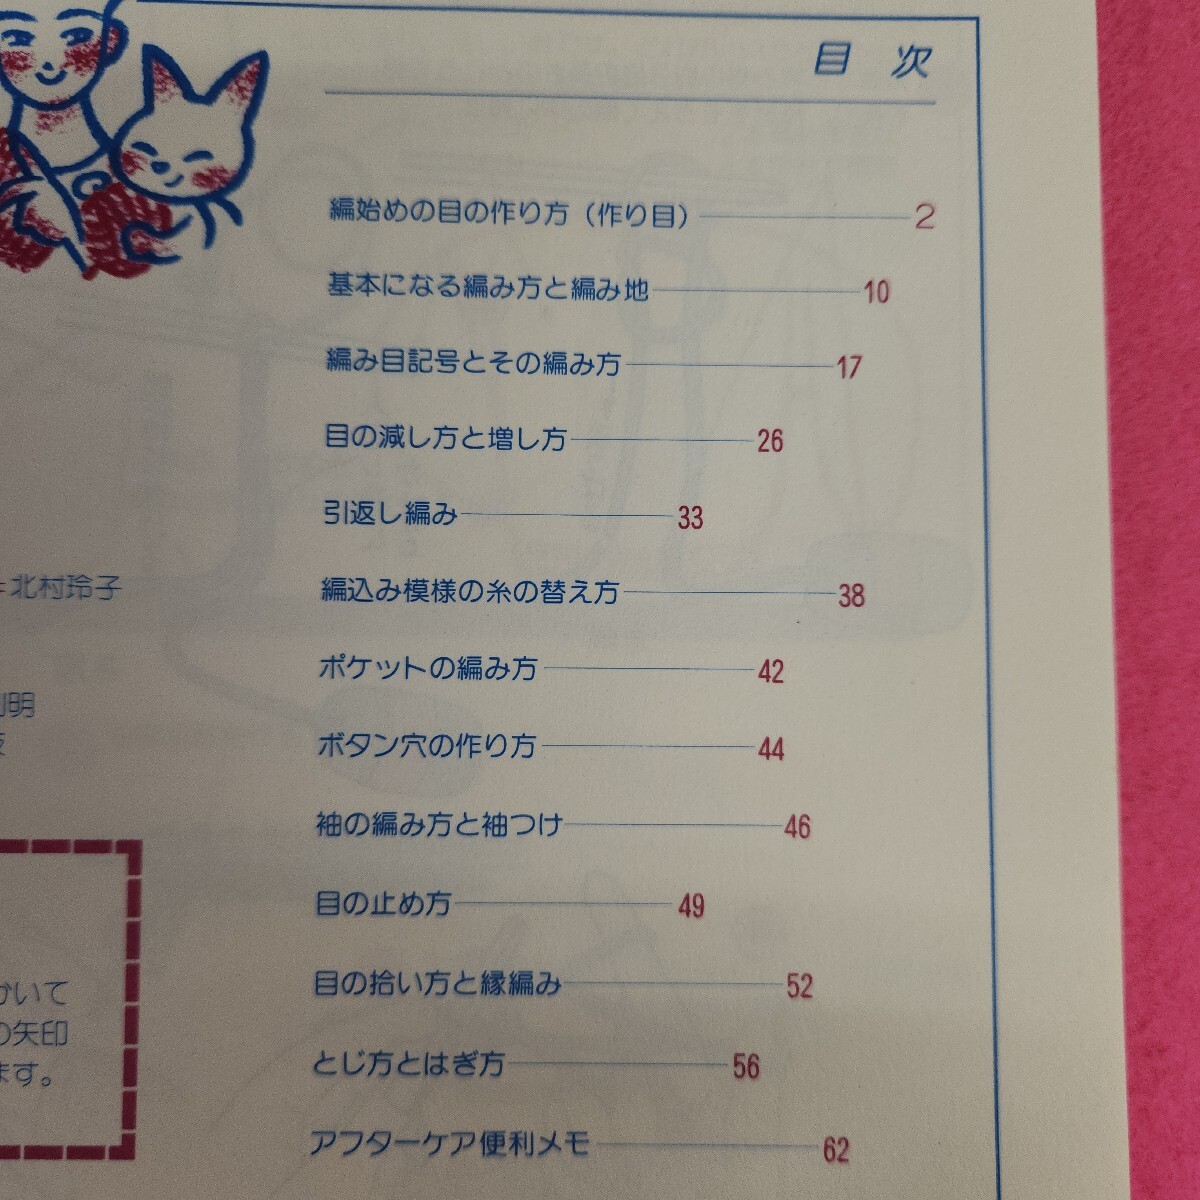 目次
編始めの目の作り方（作り目） 2
基本になる編み方と編み地 10
編み目記号とその編み方 17
目の減し方と増し方 26
引返し編み 33
編込み模様の糸の替え方 38
ポケットの編み方 42
ボタン穴の作り方 44
袖の編み方と袖つけ 46
目の止め方 49
目の拾い方と縁編み 52
とじ方とはぎ方 56
アフターケア便利メモ 62
北村玲子
明
いて
の矢印
ます。